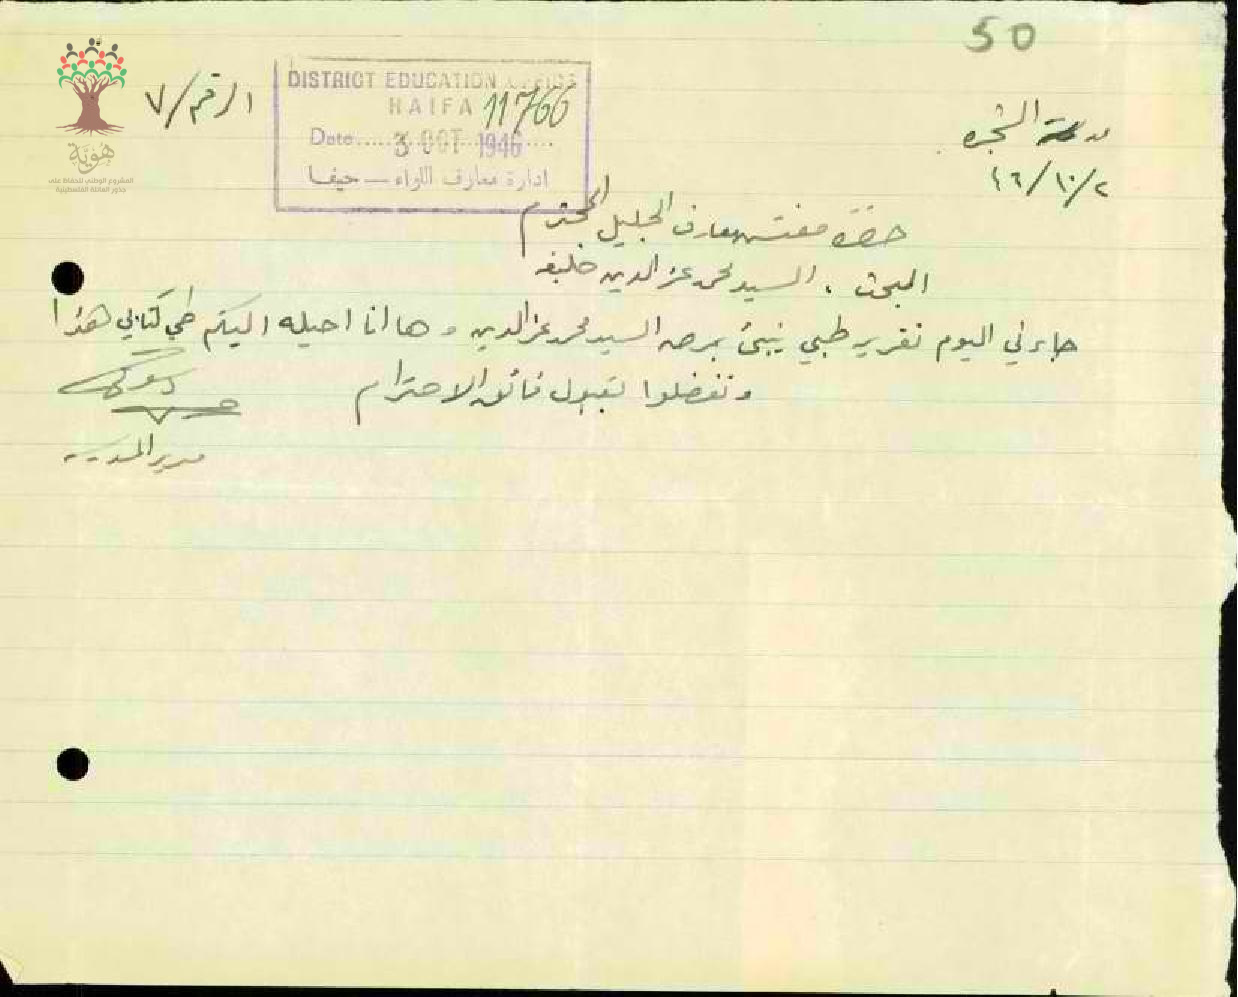 50
الرقم / ٧
DISTRICT EDUCATION OFFICE
HAIFA 11766
Date..... 3 OCT 1946
ادارة معارف اللواء — حيفا
مدرسة الشجره
٤٦/١٠/٢
حضرة مفتش معارف الجليل المحترم
المبحث . السيد محمد عز الدين خليفه
جاءني اليوم تقرير طبي ينبئ بمرض السيد محمد عز الدين وها انا احيله اليكم طي كتابي هذا
وتفضلوا بقبول فائق الاحترام
مدير المدرسة
هوية
المشروع الوطني للحفاظ على
جذور العائلة الفلسطينية